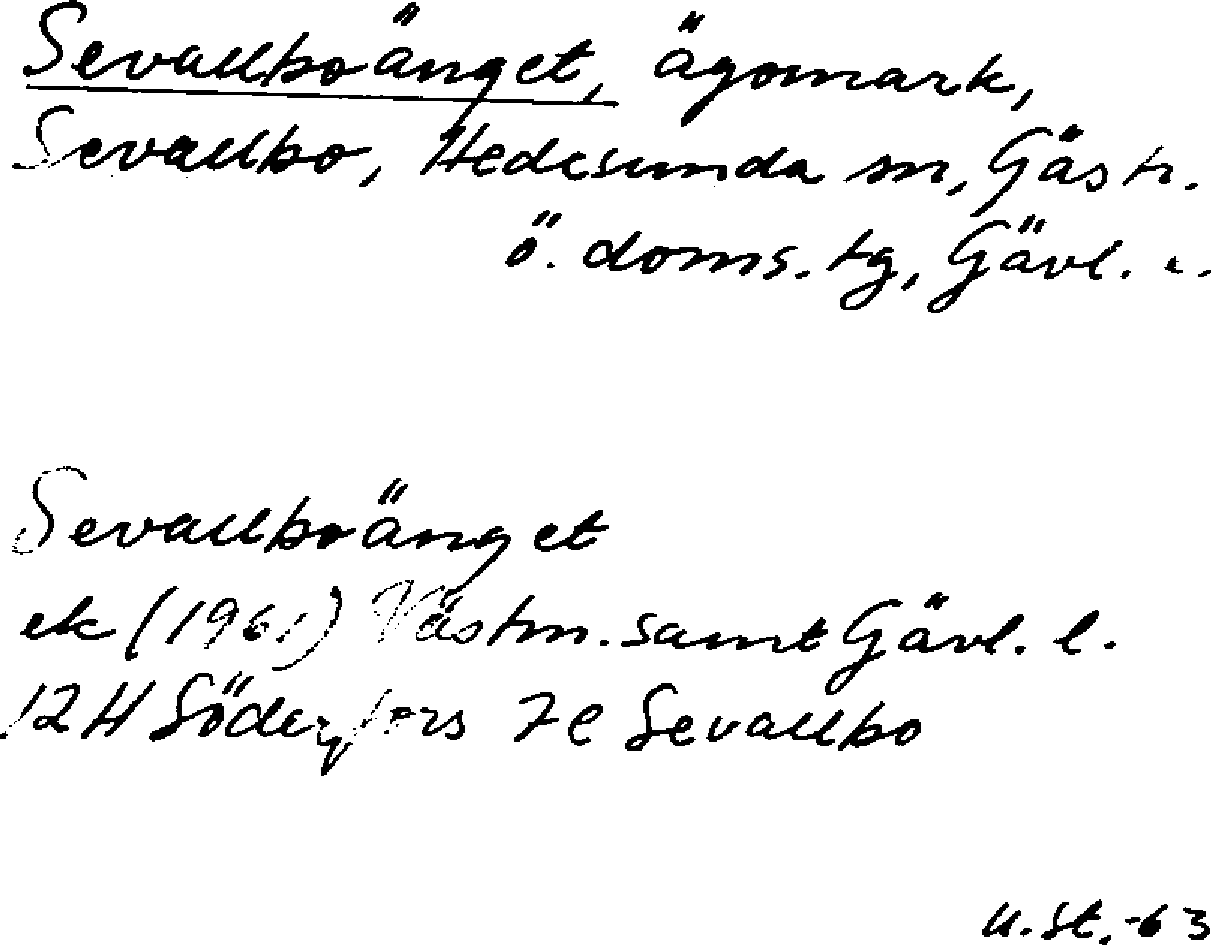 Sevallboänget, ägomark,
Sevallbo, Hedesunda sn, Gästr.
ö. doms. tg, Gävl. l.
Sevallboänget
ek (1961) Västm. samt Gävl. l.
12H Söderfors 7e Sevallbo
U.St.-63